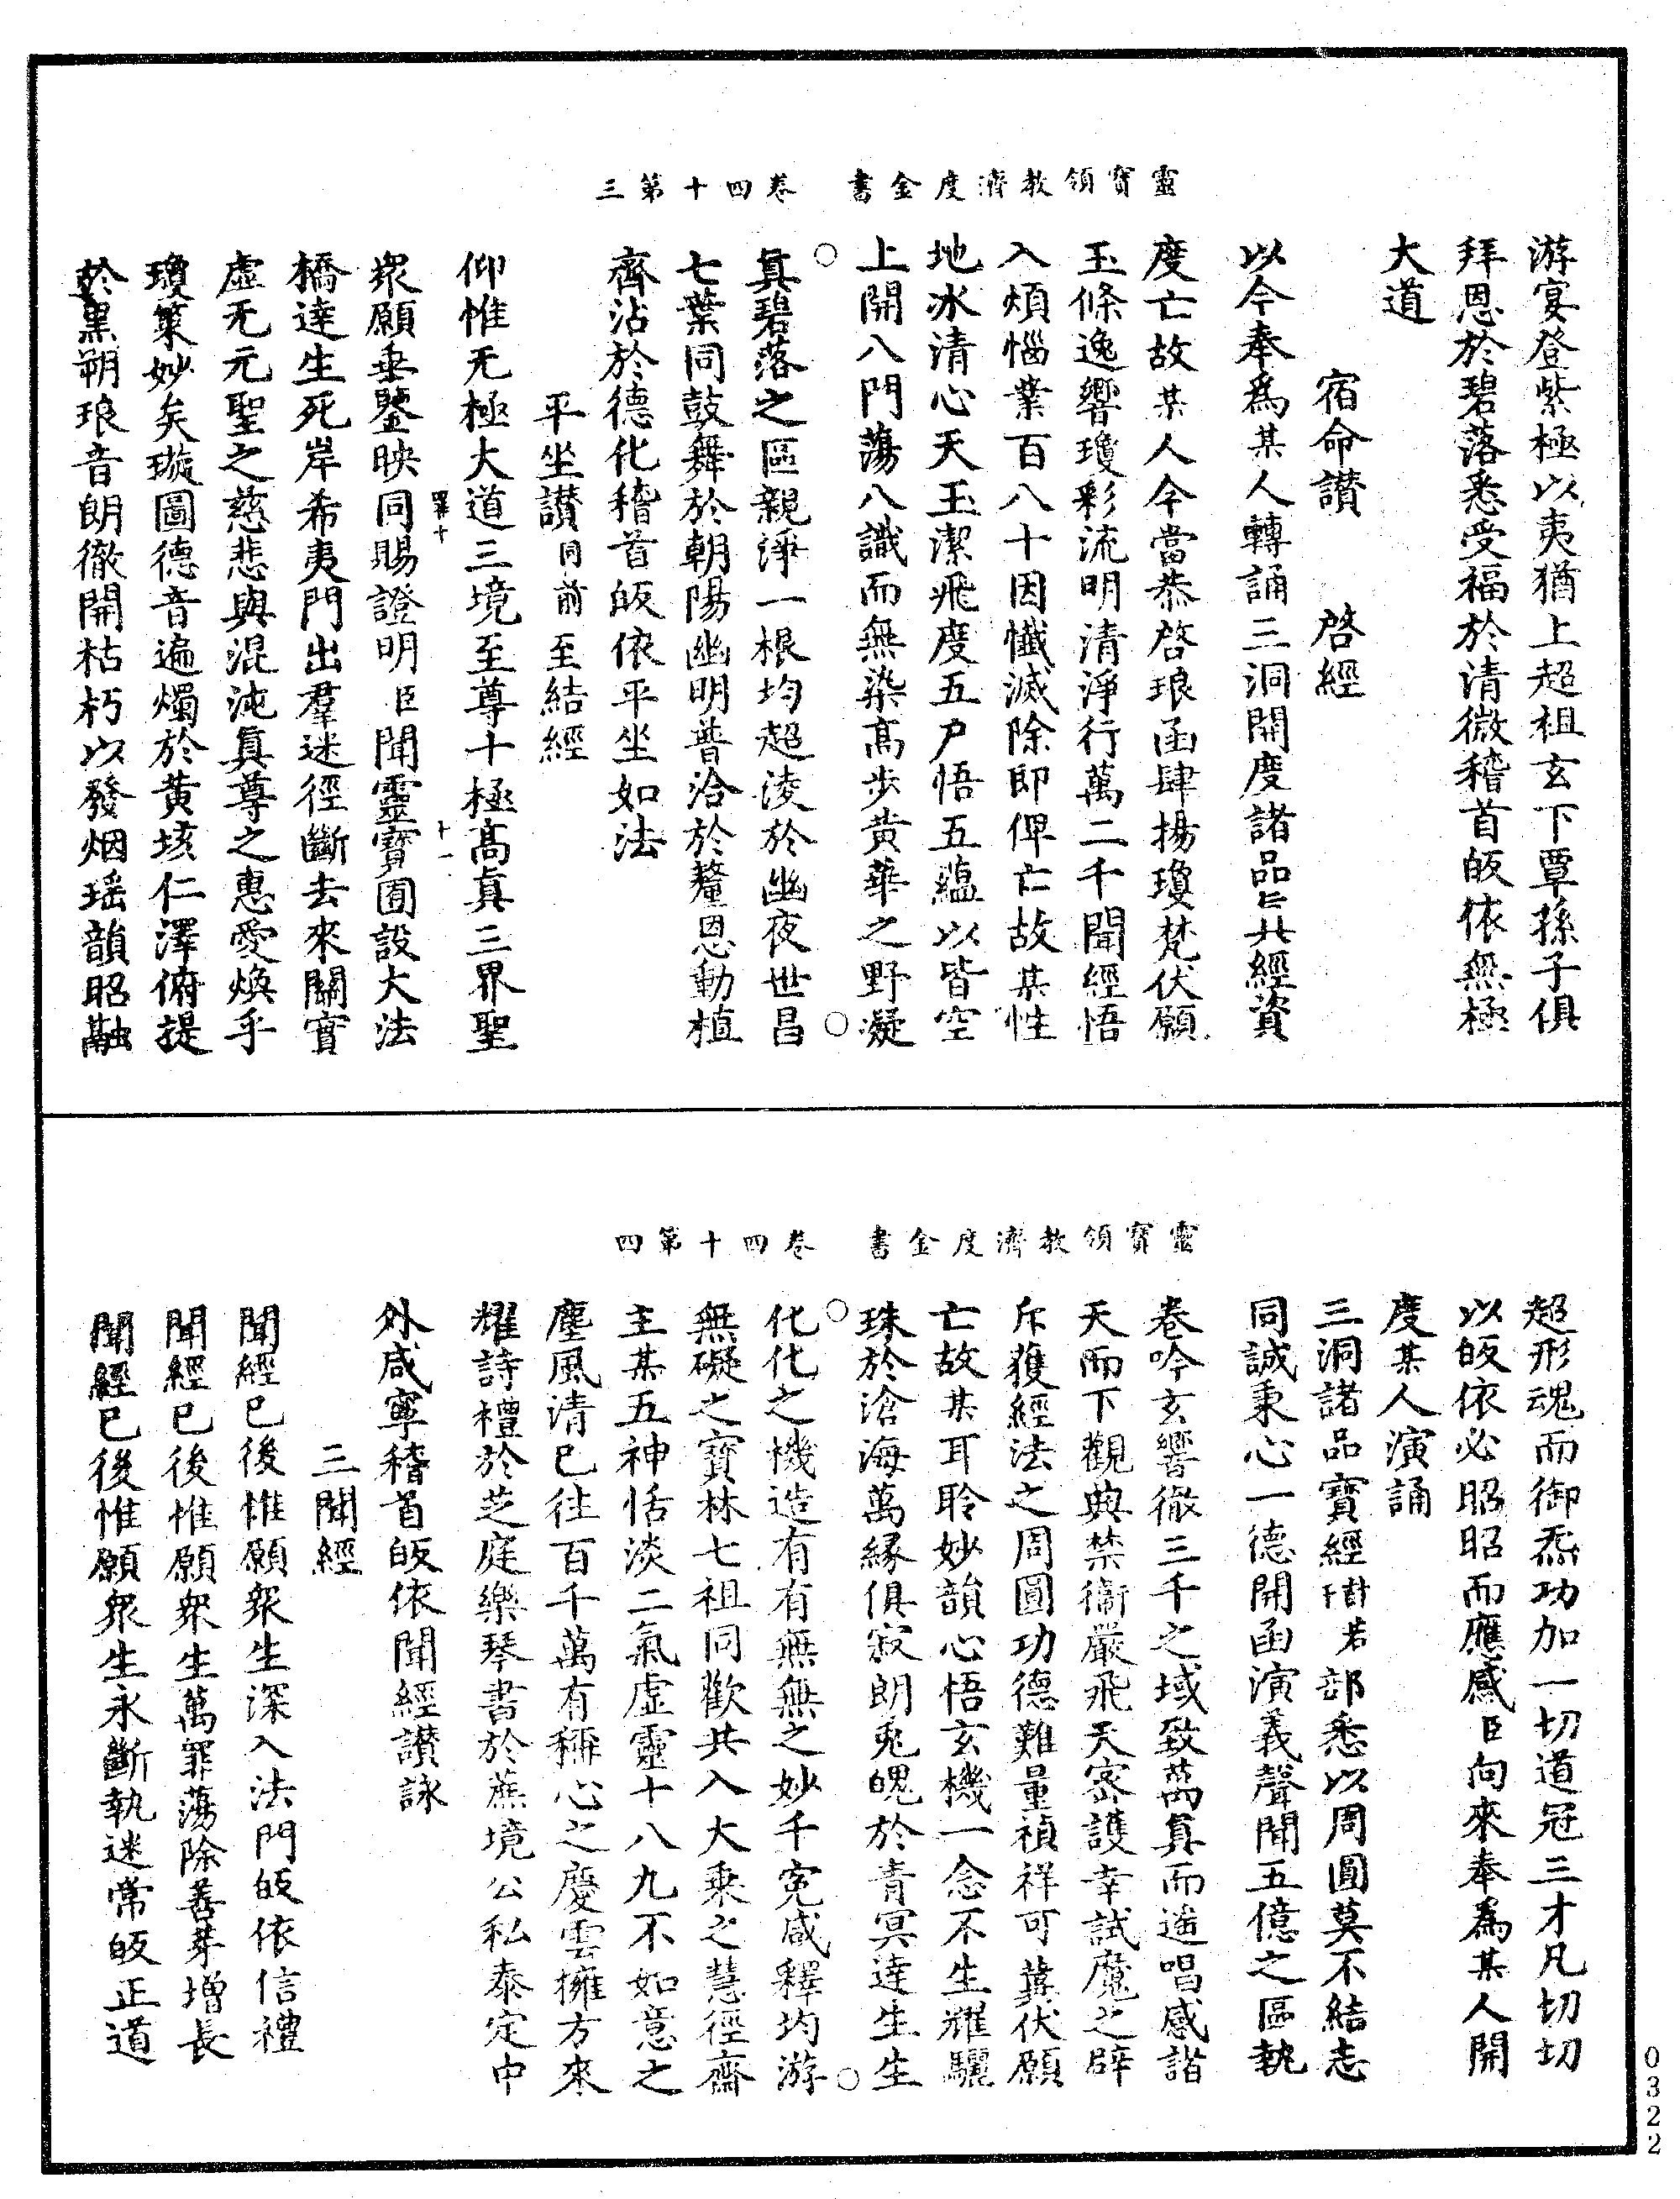 靈寶領教濟度金書　卷四十第三
游宴登紫極以夷猶上超祖玄下覃孫子俱
拜恩於碧落悉受福於清微稽首皈依無極
大道
宿命讃　啓經
以今奉爲某人轉誦三洞開度諸品上共經資
度亡故某人今當恭啓琅函肆揚瓊梵伏願
玉條逸響瓊彩流明清淨行萬二千聞經悟
入煩惱業百八十因懺滅除即俾亡故某性
地冰清心天玉潔飛度五户悟五蘊以皆空
上開八門蕩八識而無染高步黄華之野凝
眞碧落之區親淨一根均超淩於幽夜世昌
七葉同鼓舞於朝陽幽明普洽於釐恩動植
齊沾於德化稽首皈依平坐如法
平坐讃同前至結經
仰惟无極大道三境至尊十極高眞三界聖
衆願垂鑒映同賜證明臣聞靈寶囿設大法
橋達生死岸希夷門出羣迷徑斷去來關實
虛无元聖之慈悲與混沌眞尊之惠愛煥乎
瓊策妙矣璇圖德音遍燭於黄垓仁澤俯提
於黒朔琅音朗徹開枯朽以發烟瑶韻昭融
靈寶領教濟度金書　卷四十第四
超形魂而御炁功加一切道冠三才凡切切
以皈依必昭昭而應感臣向來奉爲某人開
度某人演誦
三洞諸品寶經若部悉以周圓莫不結志
同誠秉心一德開函演義聲聞五億之區執
卷吟玄響徹三千之域致萬眞而遥唱感諧
天而下觀典禁衞嚴飛天密護幸試魔之辟
斥獲經法之周圓功德難量禎祥可冀伏願
亡故某耳聆妙韻心悟玄機一念不生耀驪
珠於滄海萬緣俱寂朗兎魄於青冥達生生
化化之機造有有無無之妙千寃咸釋均游
無礙之寶林七祖同歡共入大乘之慧徑齋
主某五神恬淡二氣虚靈十八九不如意之
塵風清已往百千萬有稱心之慶雲擁方來
耀詩禮於芝庭樂琴書於蔗境公私泰定中
外咸寧稽首皈依聞經讃詠
三聞經
聞經已後惟願衆生深入法門皈依信禮
聞經已後惟願衆生萬罪蕩除善芽增長
聞經已後惟願衆生永斷執迷常皈正道
0322